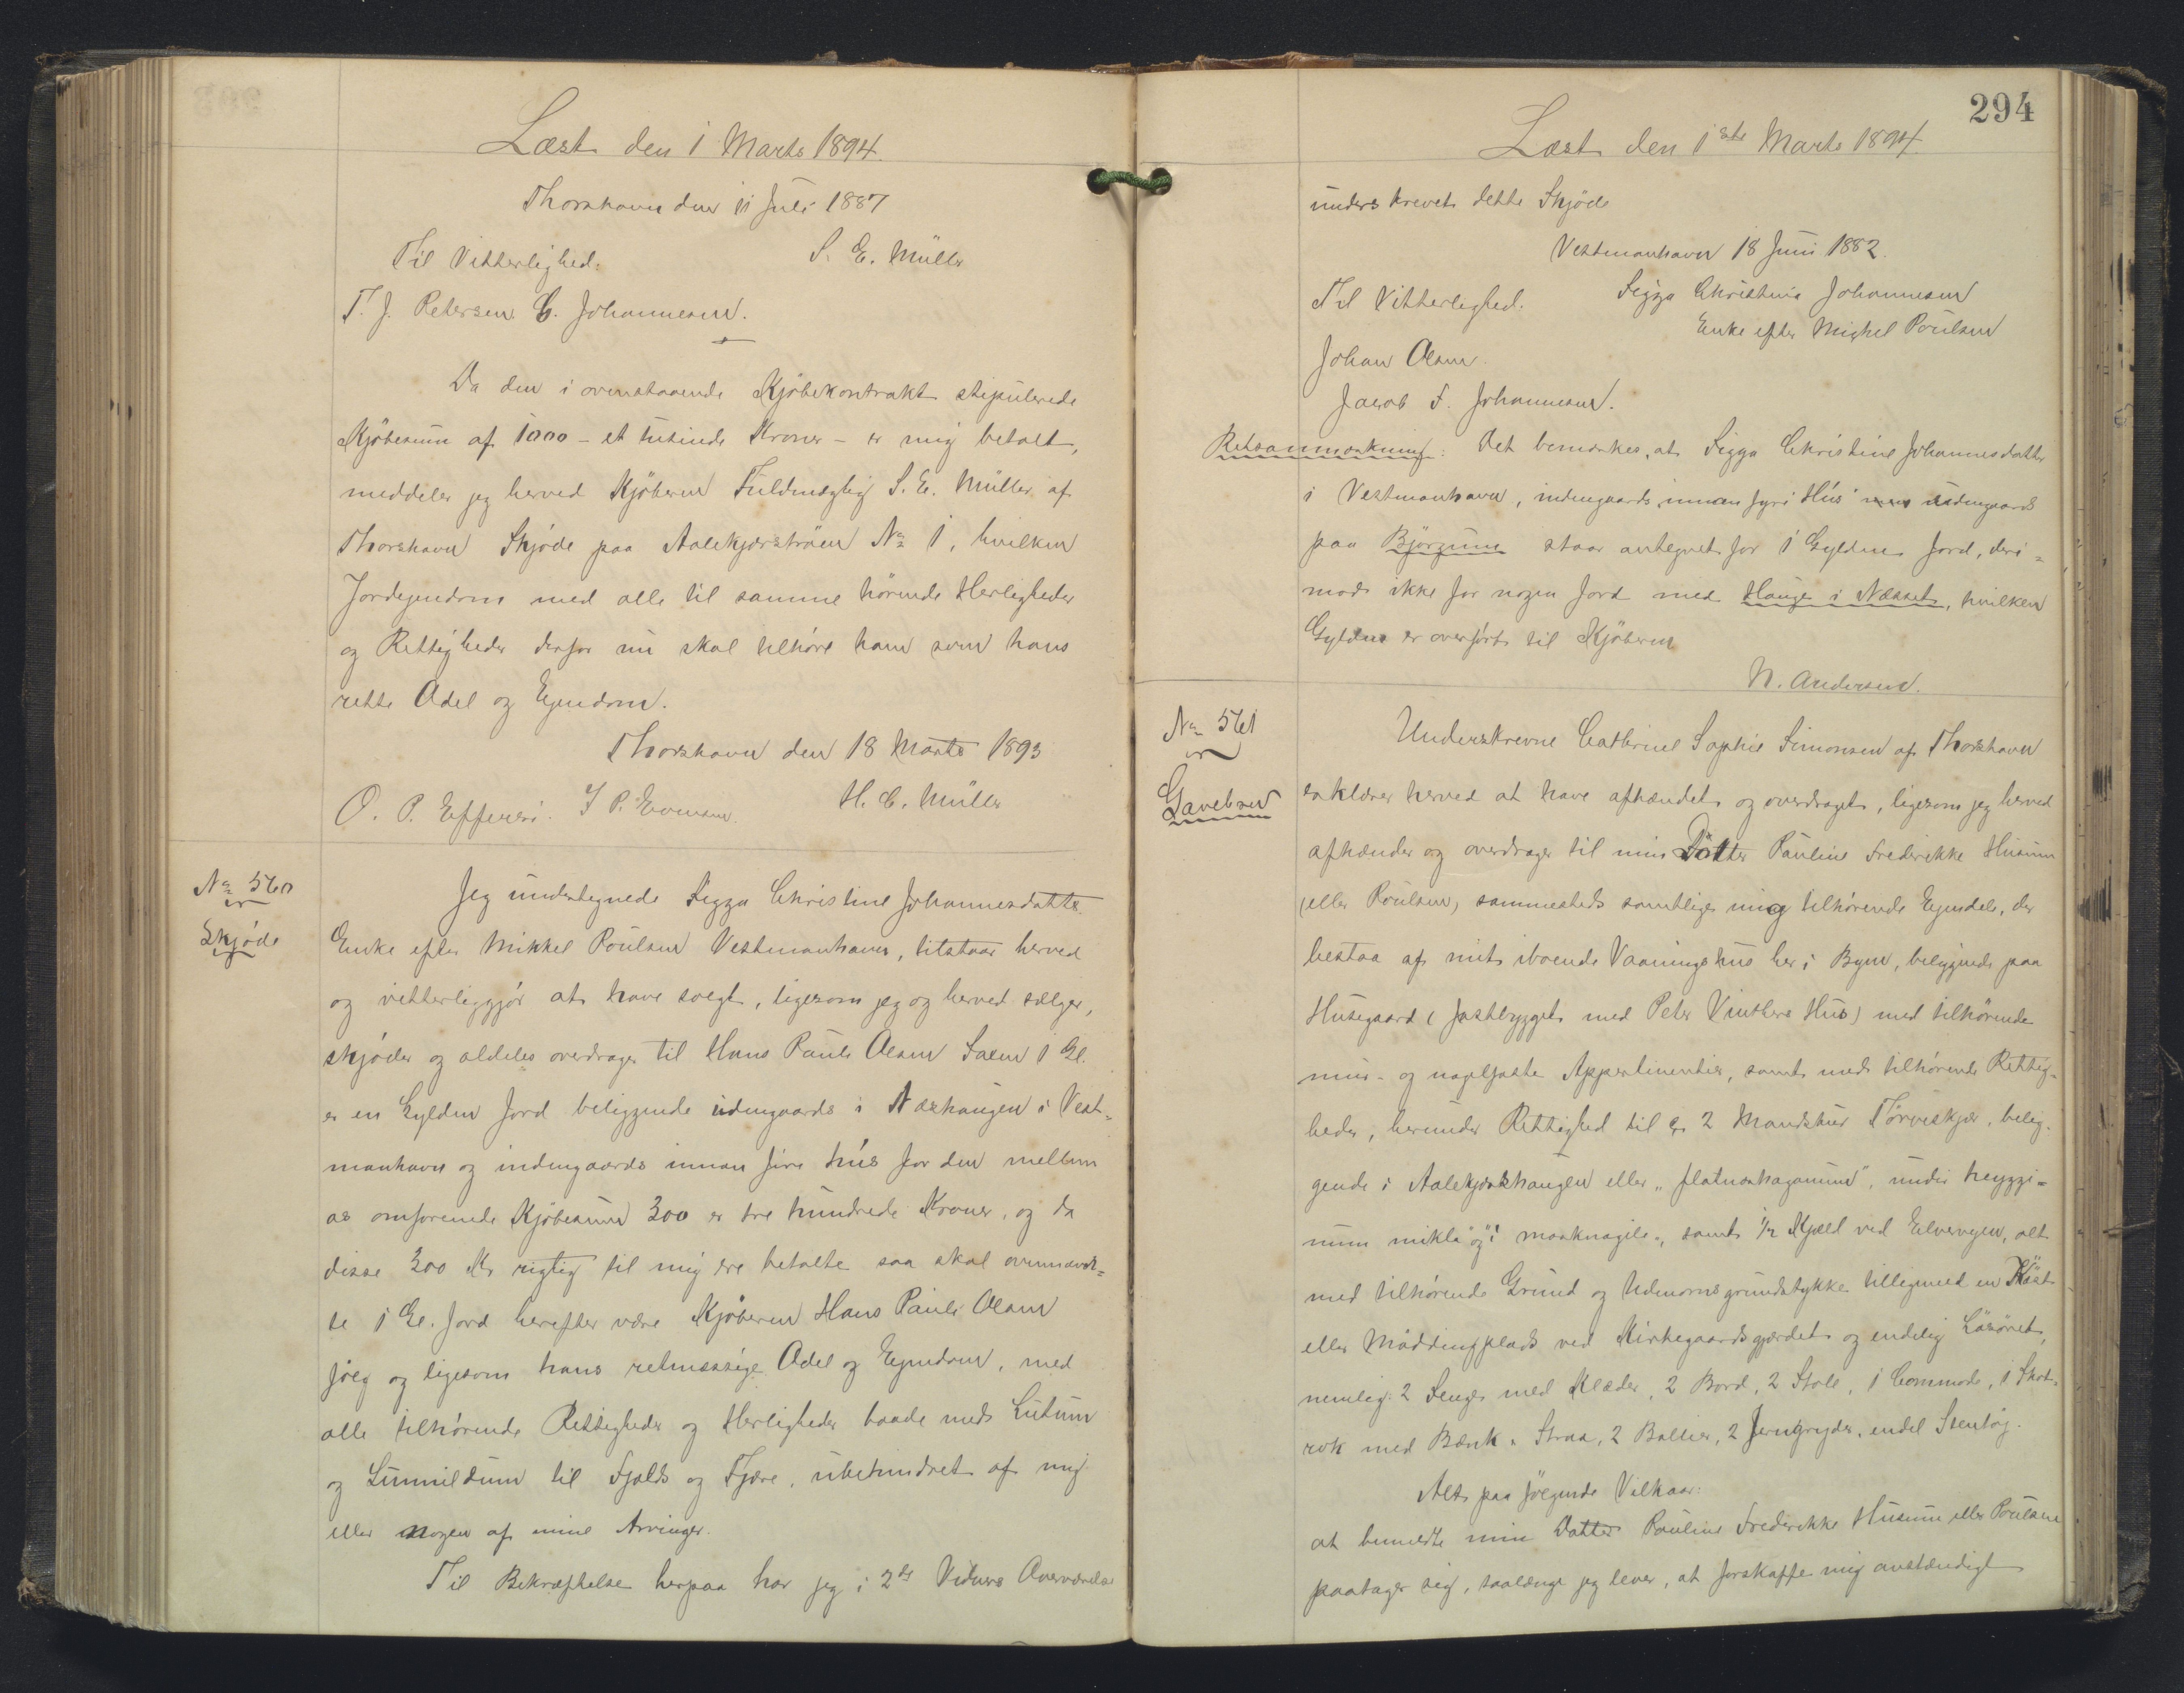 Læst den 1 Marts 1894.
Thorshavn den 11 Juli 1887
Til Vitterlighed:
S. E. Müller
T. J. Petersen. C. Johannesen.
Da den i ovenstaaende Kjöbekontrakt stipulerede
Kjöbesum af 1000 - et tusinde Kroner - er mig betalt,
meddeler jeg herved Kjöberen Fuldmægtig S. E. Müller af
Thorshavn Skjöde paa Aalekjærströen No 1, hvilken
Jordejendom med alle til samme hörende Herligheder
og Rettigheder derfor nu skal tilhöre ham som hans
rette Odel og Ejendom.
Thorshavn den 18 Marts 1893
O. P. Effersö. J P. Evensen.
H. C. Müller
No 560
Skjöde
Jeg undertegnede Sigga Christine Johannesdatter
Enke efter Mikkel Poulsen Vestmanhavn, tilstaar herved
og vitterliggjör at have solgt, ligesom jeg og herved sælger,
skjöder og aldeles overdrager til Hans Pauli Olsen Saen 1 Gl.
er en Gylden Jord beliggende udengaards i Næshaugen i Vest-
manhavn og indengaards innan firi hús for den mellem
os omforenede Kjöbesum 300 er tre hundrede Kroner, og da
disse 300 Kr rigtig til mig ere betalte saa skal ovennævn-
te 1 Gl. Jord herefter være Kjöberen Hans Pauli Olsen
fölg og ligesom hans retmæssige Odel og Ejendom, med
alle tilhörende Rettigheder og Herligheder baade med Lutum
og Lunnildum til Fjalds og Fjære, ubehindret af mig
eller nogen af mine Arvinger.
Til Bekræftelse herpaa har jeg i 2de Vidners Overværelse
294
Læst den 1ste Marts 1894.
underskrevet dette Skjöde
Vestmanhavn 18 Juni 1882.
Til Vitterlighed.
Sigga Christina Johannesen
Enke efter Michel Poulsen
Johan Olsen
Jacob F. Johannesen.
Retsanmærkning: Det bemærkes, at Sigga Christine Johannesdatter
i Vestmanhavn, indengaards "innan fyri Hús" udengaards
paa Björgum staar antegnet for 1 Gylden Jord, deri-
mod ikke for nogen Jord med Hauge i Næsset, hvilken
Gylden er overfört til Kjöberen
N. Andersen.
No 561
Gavebrev
Underskrevne Cathrine Sophie Simonsen af Thorshavn
erklærer herved at have afhændet og overdraget, ligesom jeg herved
afhænder og overdrager til min Datter Pauline Frederikke Husum
(eller Poulsen) sammesteds samtlige mig tilhörende Ejendele, der
bestaa af mit iboende Vaaningshus her i Byen, beliggende paa
Husegaard (fastbygget med Peter Vinthers Hus) med tilhörende
mur- og nagelfaste Appertinentier, samt med tilhörende Rettig-
heder, herunder Rettighed til 2 Mandskur Törveskjær, belig-
gende i Aalekjærshaugen eller "flatnahaganum", undir heyggi-
num mikla og i markagili", samt 1/2 Kjæld ved Elvevejen, alt
med tilhörende Grund og Udmarksgrundstykke tilligemed en Köst
eller Möddingplads ved Kirkegaardsgjærdet og endelig Lösöret,
nemlig: 2 Senge med Klæder, 2 Bord, 2 Stole, 1 Commode, 1 Skot-
rok med Bænk & Straa, 2 Baltier, 2 Jerngryder, endel Stentöj.
Alt paa fölgende Vilkaar:
at bemeldte min Datter Pauline Frederikke Husum eller Poulsen
paatager sig, saalænge jeg lever, at forskaffe mig anstændigt